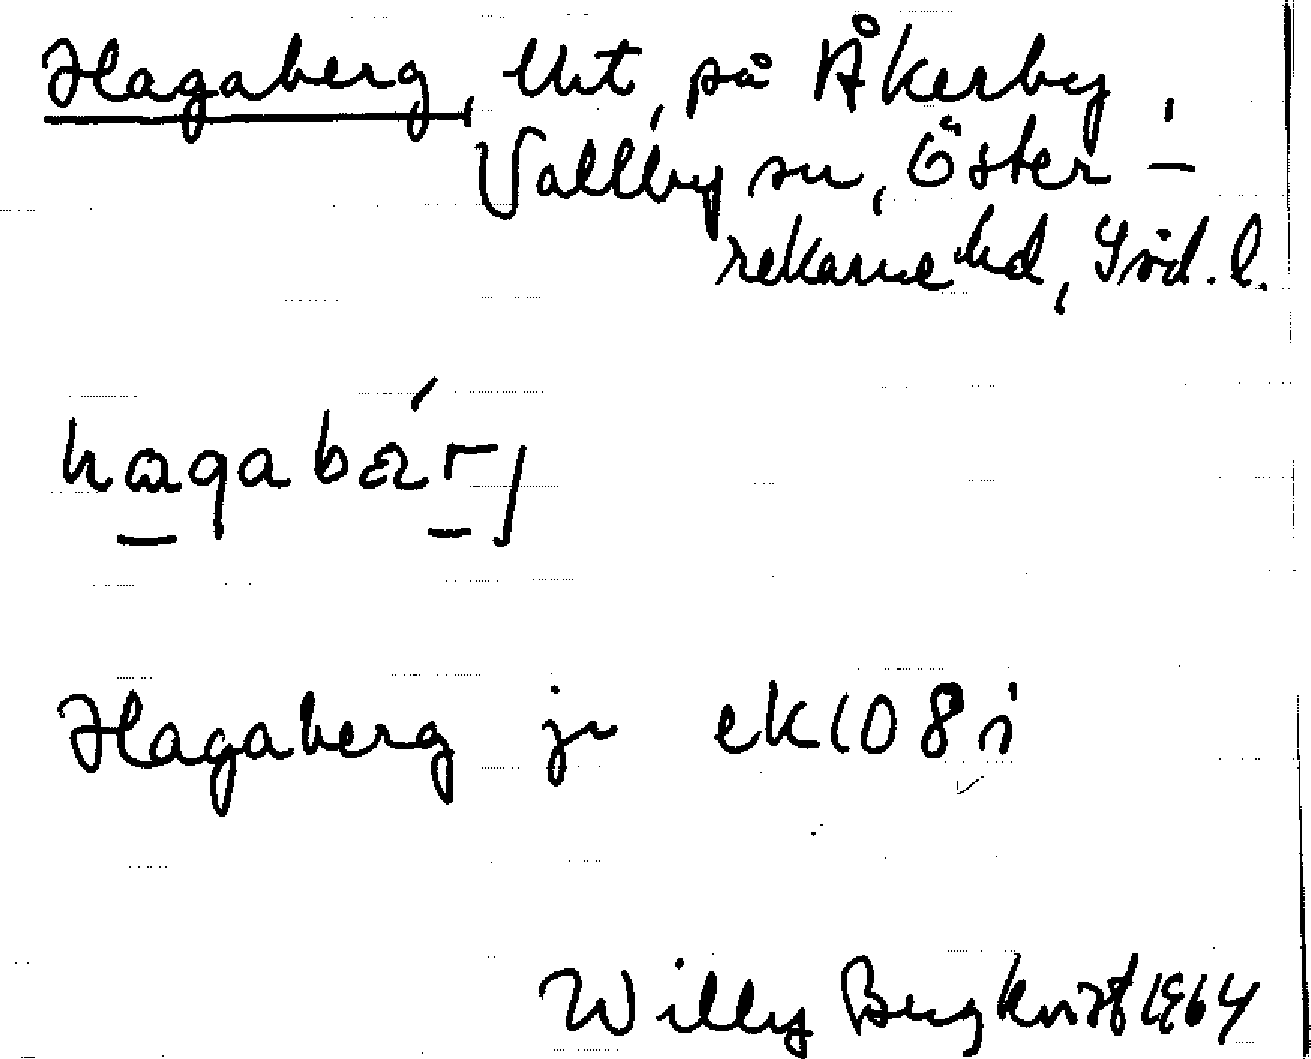 Hagaberg, Uht, på Åkerby,
Vallby sn, Öster-
rekarne hd, Söd. l.
hagabärj
Hagaberg ju ek 108 i
Willy Bergkvist 1964